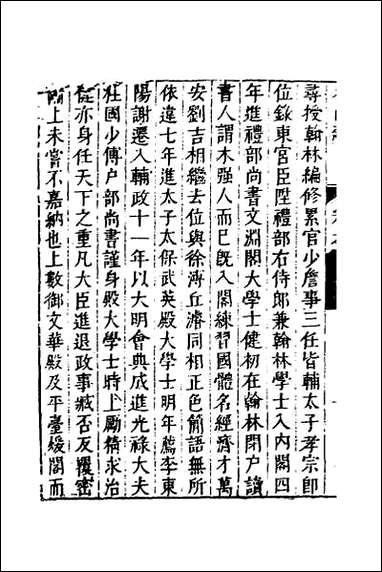 尋授翰林編修累官少詹事三任皆輔太子孝宗即
位錄東宮臣陞禮部右侍郎兼翰林學士入內閣四
年進禮部尚書文淵閣大學士健初在翰林閉户讀
書人謂木强人而已既入閣練習國體名經濟才萬
安劉吉相繼去位與徐溥丘濬同相正色簡語無所
依違七年進太子太保武英殿大學士明年薦李東
陽謝遷入輔政十一年以大明會典成進光祿大夫
柱國少傅户部尚書謹身殿大學士時上勵精求治
健亦身任天下之重凡大臣進退政事臧否及覆密
上未嘗不嘉納也上數御文華殿及平臺煖閣而